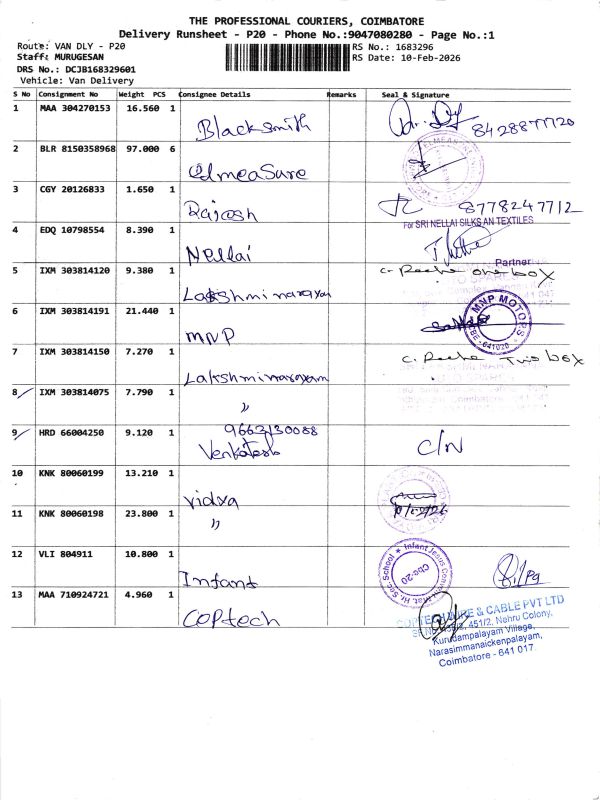 THE PROFESSIONAL COURIERS, COIMBATORE
Delivery Runsheet - P20 - Phone No.:9047080280 - Page No.:1
Route: VAN DLY - P20
RS No.: 1683296
Staff: MURUGESAN
RS Date: 10-Feb-2026
DRS No.: DCJB168329601
Vehicle: Van Delivery
S No Consignment No Weight PCS Consignee Details Remarks Seal & Signature
1 MAA 304270153 16.560 1 Blacksmith 8428877720
2 BLR 8150358968 97.000 6 Elmeasure
3 CGY 20126833 1.650 1 Rajesh 8778247712
For SRI NELLAI SILKS AN TEXTILES
4 EDQ 10798554 8.390 1 Nellai
Partner
5 IXM 303814120 9.380 1 Lakshminarayan one box
6 IXM 303814191 21.440 1 MNP
MNP MOTORS
CBE - 641020
7 IXM 303814150 7.270 1 Lakshminarayam box
8 IXM 303814075 7.790 1 "
Coimbatore
9 HRD 66004250 9.120 1 9663130088 Venkatesh C/N
10 KNK 80060199 13.210 1 Vidya
11 KNK 80060198 23.800 1 "
12 VLI 804911 10.800 1 Infant
Infant Jesus Hr. Sec. School
Cbe-20
13 MAA 710924721 4.960 1 Coptech
COPTECH WIRE & CABLE PVT LTD
451/2, Nehru Colony,
Kurudampalayam Village,
Narasimmanaickenpalayam,
Coimbatore - 641 017.